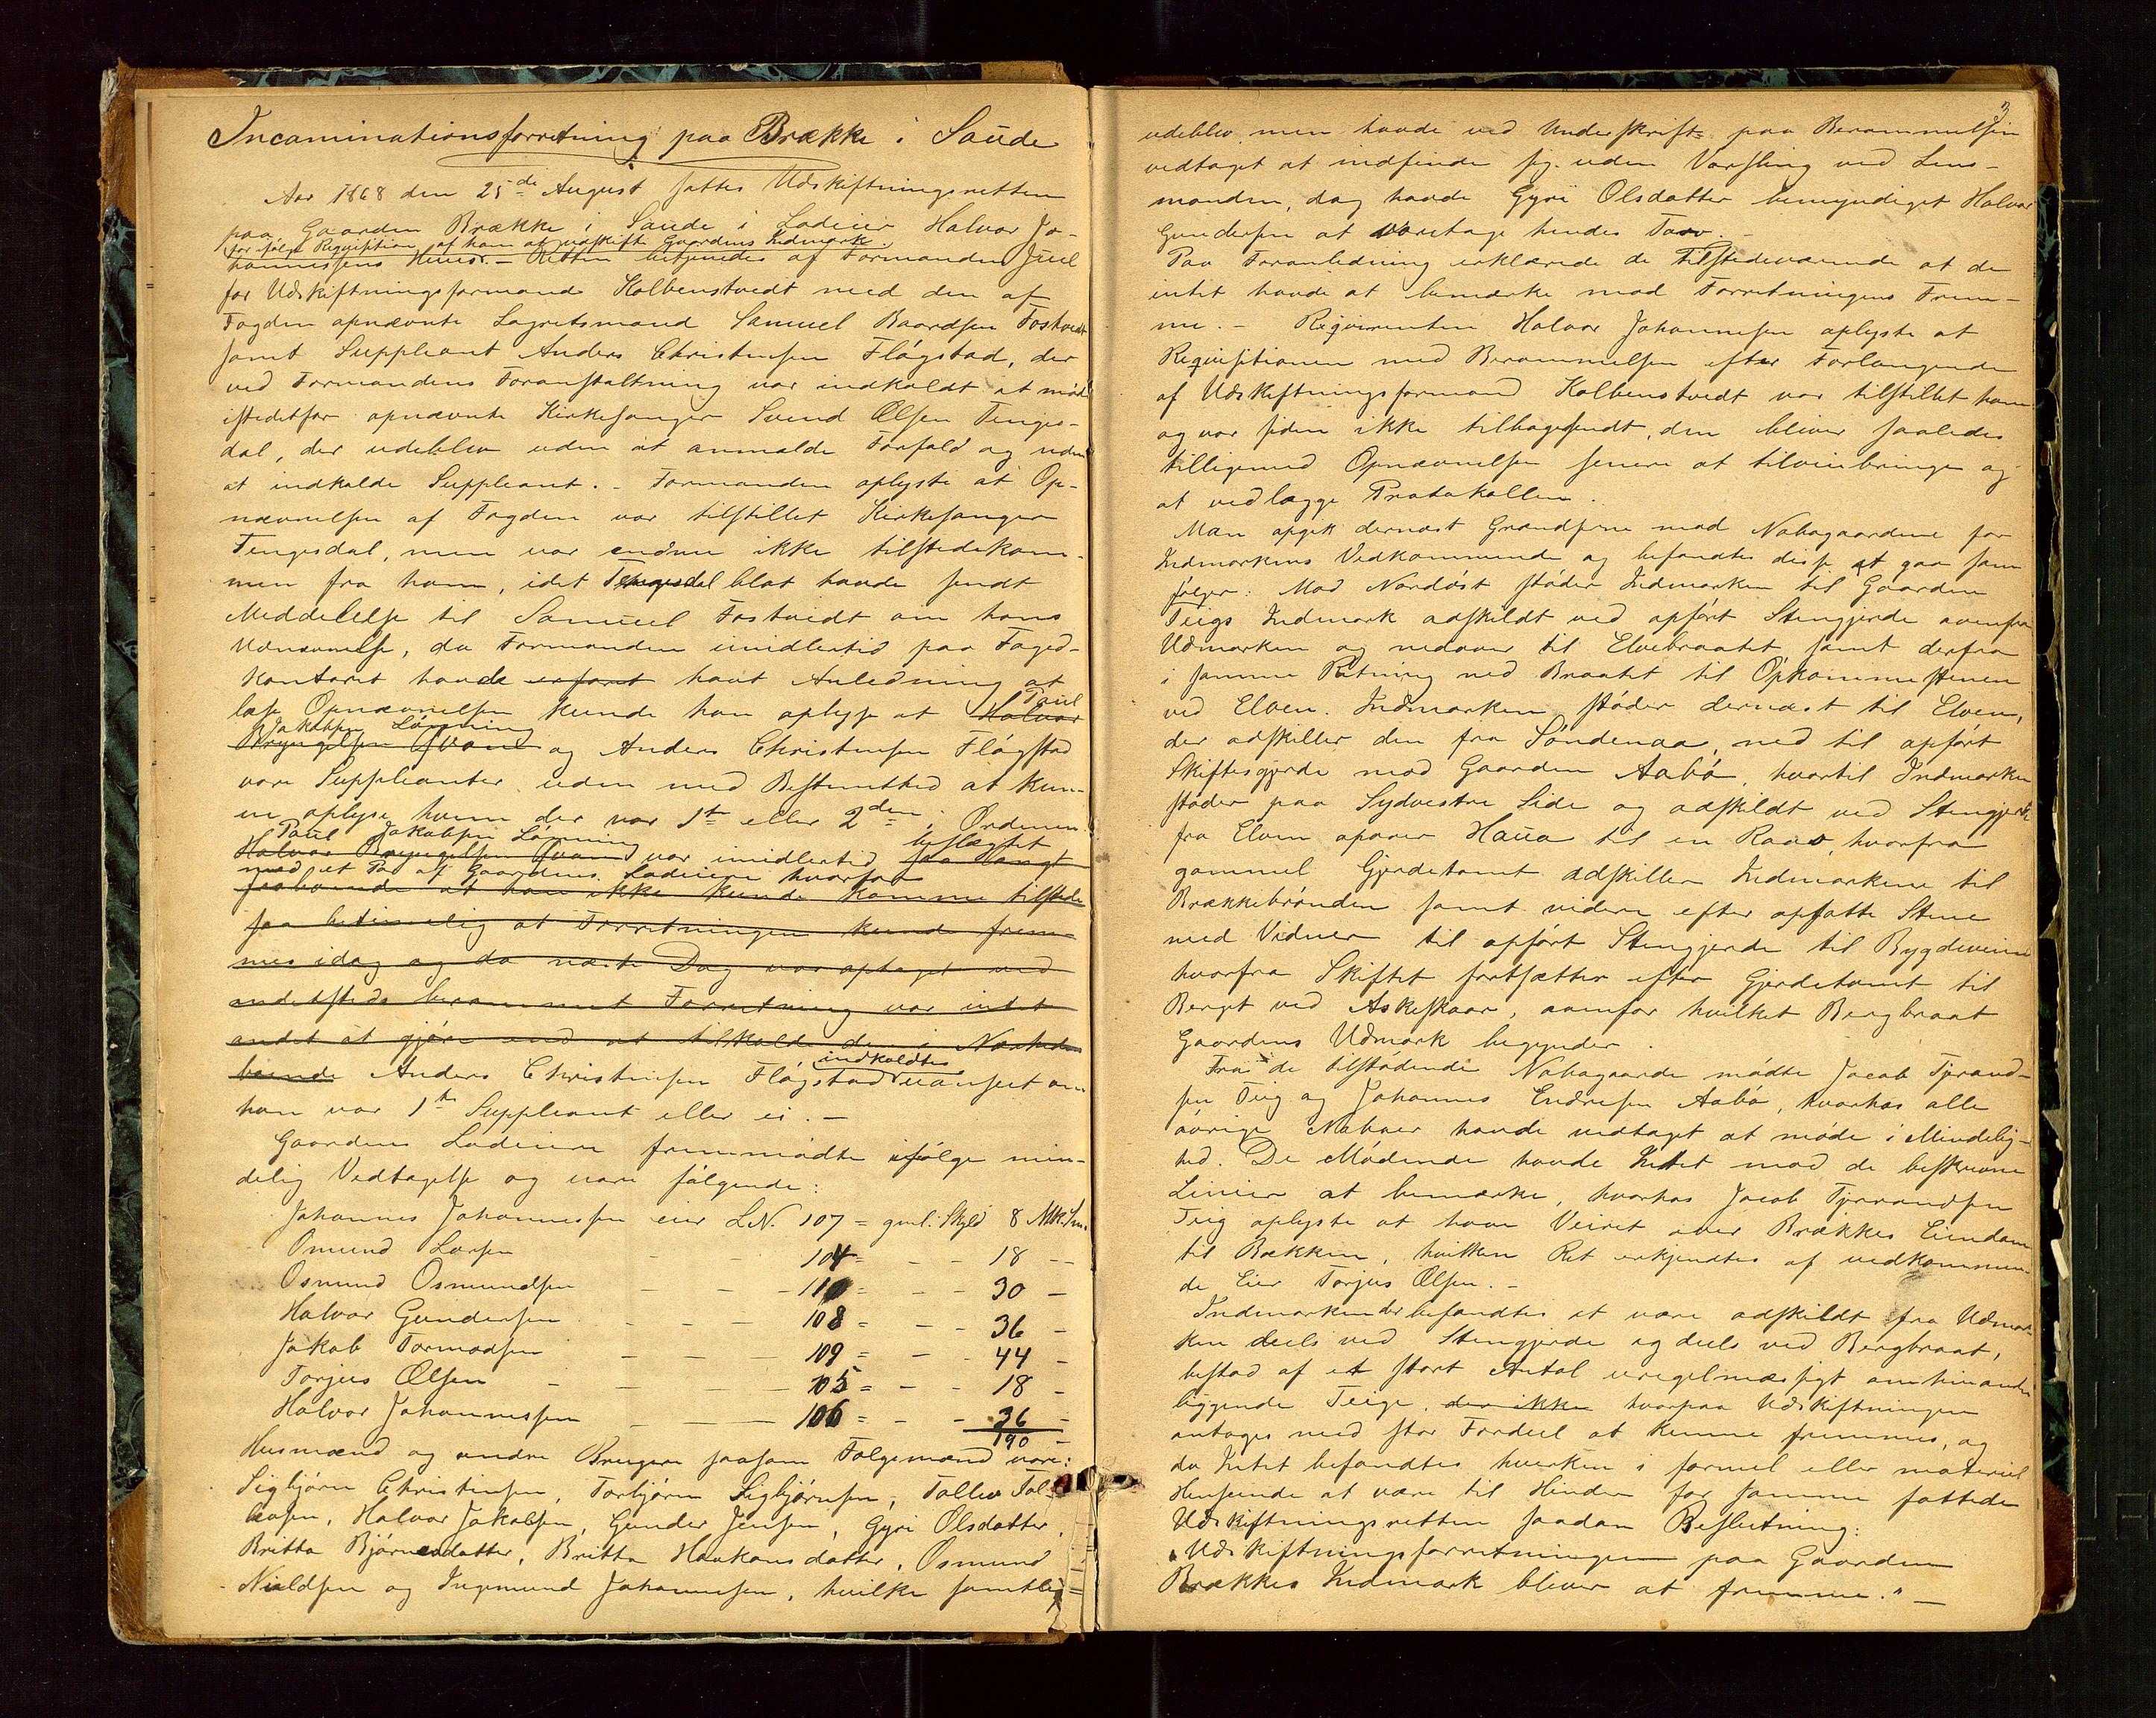 Incaminationsforretning paa Brække i Saude
Aar 1868 den 25de August sattes Udskiftningsretten
paa Gaarden Brække i Saude i Lodeier Halvor Jo-
for følge Requisition af ham at udskifte Gaardens Indmark.
hannessens Huus. - Retten betjenedes af Formanden Juul
for Udskiftningsformand Kolbenstvedt med den af
Fogden opnævnte Lagretsmand Samuel Baardsen Fostvedt
samt Suppleant Anders Christensen Fløgstad, der
ved Formandens Foranstaltning var indkaldt at møde
istedetfor opnævnte Kirkesanger Svend Olsen Tenges-
dal, der udeblev uden at anmelde Forfald og uden
at indkalde Suppleant. - Formanden oplyste at Op-
nævnelsen af Fogden var tilstillet Kirkesanger
Tengesdal, men var endnu ikke tilstedekom-
men fra ham, idet Tengesdal blot havde sendt
Meddelelse til Samuel Fostvedt om hans
Udnævnelse, da Formanden imidlertid paa Foged-
kontoret havde erfaret havt Anledning at
læse Opnævnelsen kunde han oplyse at Halvor Paul
Jakobsen Løvning
Bryngelsen Qvam og Anders Christensen Fløgstad
vare Suppleanter uden med Bestemthed at kun-
ne oplyse hvem der var 1ste eller 2den i Ordenen.
Paul Jakobsen Løvning beslægtet
Halvor Bryngelsen Qvam var imidlertid saa langt
med et Par af Gaardens Lodeiere hvorfor
fraboende at han ikke kunde komme tilstede
saa betimelig at Forretningen kunde frem-
mes idag og da næste Dag var optaget ved
andetsteds berammet Forretning var intet
andet at gjøre end at tilkalde den i Nærheden
indkaldtes
boende Anders Christensen Fløgstad uanseet om
han var 1ste Suppleant eller ei. -
Gaardens Lodeiere fremmødte ifølge min-
delig Vedtagelse og vare følgende:
Johannes Johannessen eier L.N. 107 = gml. Skyld 8 Mk. Sm.
Omund Larsen - - 104 = - - 18 - -
Osmund Osmundsen - - - 110 = - - 30 -
Halvor Gundersen - - - 108 = - - 36 -
Jakob Tormodsen - - 109 = - - 44 -
Torjus Olsen - - - - 105 = - - 18 -
Halvor Johannessen - - - 106 = - - 36 -
190 -
Husmænd og andre Brugere saasom Folgemænd vare:
Sigbjørn Christensen, Torbjørn Sigbjørnsen, Tollev Tol-
levsen, Halvor Jakobsen, Gunder Jensen, Gyri Olsdatter,
Britta Bjørnsdatter, Britta Haakonsdatter, Osmund
Nieldsen og Ingemund Johannesen, hvilke samtlig
3
udeblev men havde ved Underskrift paa Berammelsen
vedtaget at indfinde sig uden Varsling ved Lens-
manden, dog havde Gyri Olsdatter bemyndiget Halvor
Gundersen at varetage hendes Tarv. -
Paa Foranledning erklærede de Tilstedeværende at de
intet havde at bemærke mod Forretningens Frem-
me. - Reqvirenten Halvor Johannesen oplyste at
Requisitionen med Berammelsen efter Forlangende
af Udskiftningsformand Kolbenstvedt var tilstillet ham
og var siden ikke tilbagesendt, den bliver saaledes
tilligemed Opnævnelsen senere at tilveiebringe og
at vedlægge Protokollen.
Man opgik dernæst Grændserne mod Nabogaardene for
Indmarkens Vedkommende og befandtes disse at gaa som
følger: Mod Nordøst støder Indmarken til Gaarden
Teigs Indmark adskildt ved opført Stengjerde ovenfra
Udmarken og nedover til Elvebraatet samt derfra
i samme Retning ned Braatet til Opkommestenen
ved Elven. Indmarken støder dernæst til Elven,
der adskiller den fra Søndenaa, ned til opført
Skiftesgjerde mod Gaarden Aabø, hvortil Indmarken
støder paa Sydvestre Side og adskildt ved Stengjerde
fra Elven opover Haua til en Raas, hvorfra
gammel Gjerdetomt adskiller Indmarkene til
Brækkebrønden samt videre efter opsatte Stene
med Vidner til opført Stengjerde til Bygdeveien
hvorfra Skiftet fortsætter efter Gjerdetomt til
Berget ved Askeskaar, ovenfor hvilket Bergbraat
Gaardens Udmark begynder.
Fra de tilstødende Nabogaarde mødte Jacob Tjerand-
sen Teig og Johannes Endresen Aabø, hvorhos alle
øvrige Naboer havde vedtaget at møde i Mindelig-
hed. De Mødende havde Intet mod de beskrevne
Linier at bemærke, hvorhos Jacob Tjerandsen
Teig oplyste at have Veiret over Brækkes Eiendom
til Bækken, hvilken Ret erkjendtes af vedkommen-
de Eier Torjus Olsen. -
Indmarken der befandtes at være adskildt fra Udmar-
ken deels ved Stengjerde og deels ved Bergbraat,
bestod af et stort Antal uregelmæssigt om hinanden
liggende Teige, der ikke hvorpaa Udskiftningen
antages med stor Fordeel at kunne fremmes, og
da Intet befandtes hverken i formel eller materiel
Henseende at være til Hinder for samme fattede
Udskiftningsretten saadan Beslutning:
"Udskiftningsforretningen paa Gaarden
Brækkes Indmark bliver at fremme." -